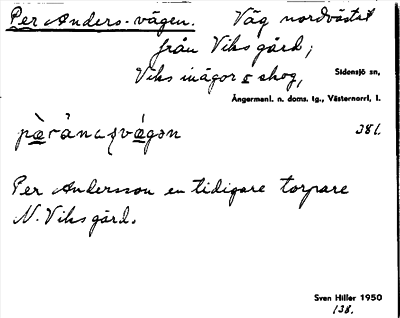 Per Anders-vägen. Väg nordväst
från Viks gård;
Viks inägor o skog, Sidensjö sn,
Ångermanl. n. doms. tg., Västernorrl. l.
381.
Per Andersson en tidigare torpare
N. Viks gård.
Sven Hiller 1950
138.